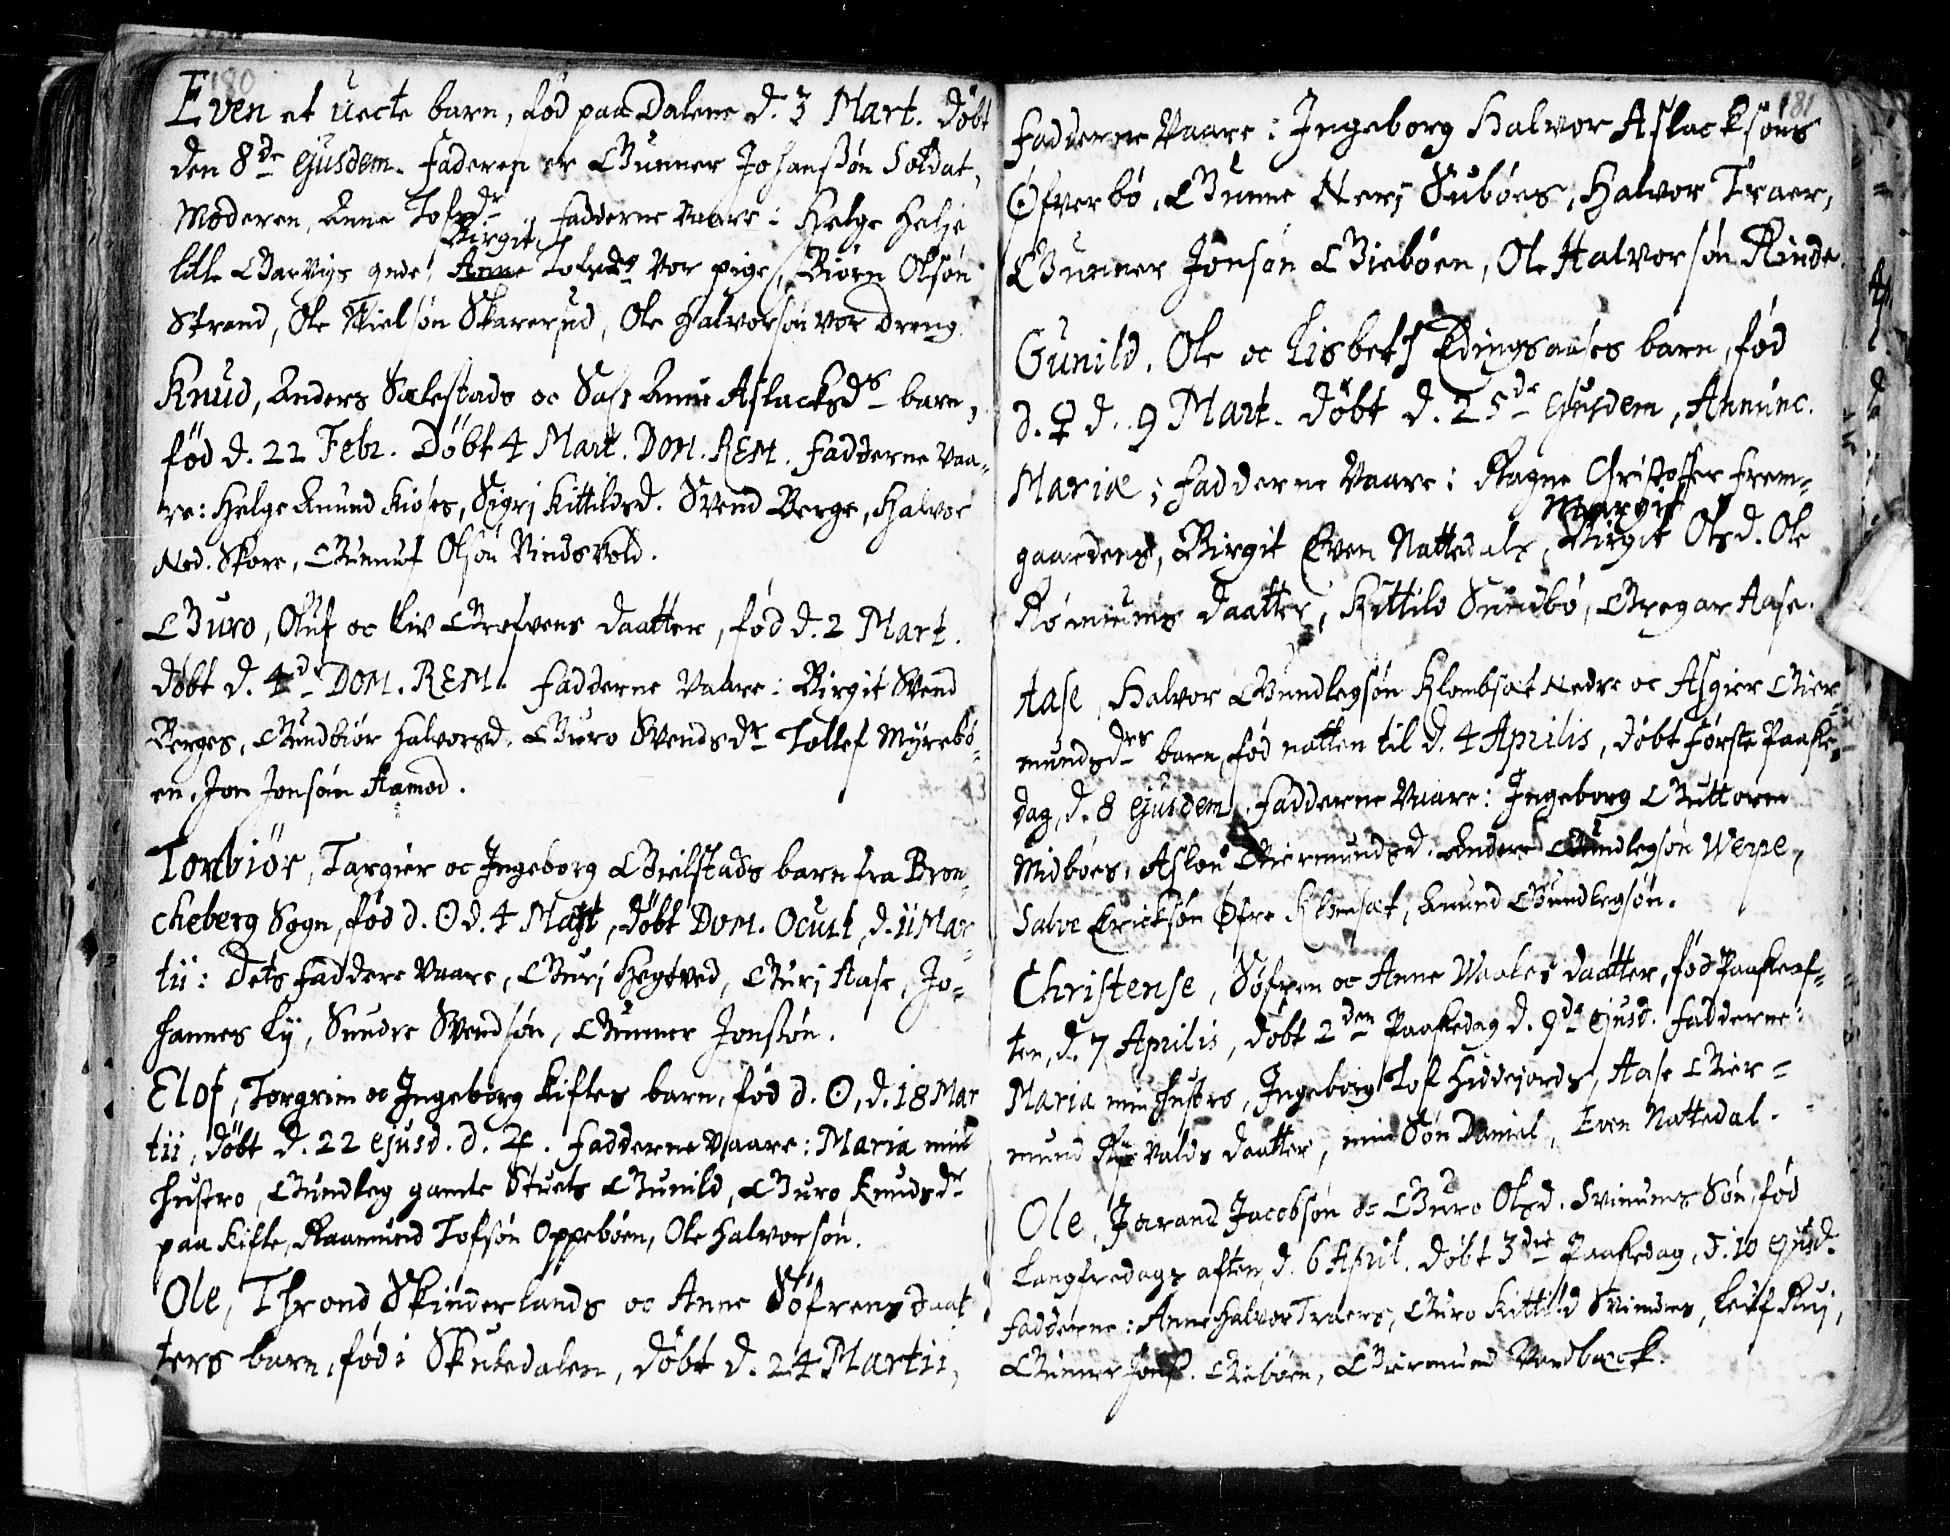 180
Even et uecte barn, fød paa Dalene d. 3 Mart. døbt
den 8de ejusdem. Faderen er Gunner Johanssøn Soldat,
Moderen, Anne Tofsdr, Fadderne vaare: Helge Helje
Birgit
lille Garvigs qnde, Anne Tofsds vor pige, Biørn Olsøn
Strand, Ole Nielsøn Skarerud, Ole Halvorsøn vor dreng.
Knud, Anders Sælestads oc Sas: Anne Aslacksds barn,
fød d. 22 Febr. Døbt 4 Mart. DOM. REM. Fadderne vaa-
re: Helge Amund Kioses, Sigri Kittildsd. Svend Berge, Halvor
Ned. Skore, Gunnuf Olsøn Vindsvold.
Guro, Oluf oc Liv Grefvens daatter, fød d. 2 Mart.
døbt d. 4de DOM. REM. Fadderne vaare: Birgit Svend
Berges, Gundbiør Halvorsd. Guro Svendsdr Tollef Myrebø-
en, Jon Jonsøn Aamod.
Torbiør, Targier oc Ingeborg Gielstads barn fra Bron-
cheberg Sogn, fød d. ☉ d. 4 Mart, døbt DOM. Oculi, d. 11 Mar-
tii: Dets Faddere vaare, Guri Hegtved, Guri Aase, Jo-
hannes Ly, Sundre Svendsøn, Gunner Jonssøn.
Elof, Torgrim oc Ingeborg Kiftes barn, fød d. ☉, d. 18 Mar
tii, døbt d. 22 ejusd. d. ♃. Fadderne vaare: Maria min
hustro, Gundleg gamle Stuets Gunild, Guro Knudsdr
paa Kifte, Aamund Tofsøn Oppebøen, Ole Halvorsøn.
Ole, Thrond Skinderlands oc Anne Søfrens daat
ters barn, fød i Skutedalen, døbt d. 24 Martii,
181
Fadderne vaare: Ingeborg Halvor Aslacksøns
Øfverbø, Gunne Neri Subøes, Halvor Traer,
Gunner Jonsøn Giebøen, Ole Halvorsøn Rinde.
Gunild. Ole oc Lisbeth Edingsaases barn, fød
d. ♀ d. 9 Mart. døbt d. 25de Ejusdem, Annunc.
Mariæ; Fadderne vaare: Ragne Christoffer Frem-
Margit
gaardens, Birgit Even Nattedals, Birgit Olsd. Ole
Rømiums daatter, Kittild Sundbø, Gregar Aase.
Aase, Halvor Gundlegsøn Klombsæt Nedre oc Asgier Gier-
mundsdrs barn, fød natten til d. 4 Aprilis, døbt første Paaske-
dag, d. 8 ejusdem. Fadderne vaare: Ingeborg Guttorm
Midbøes, Aslou Giermundsd. Anders Gundlegsøn Werpe,
Salve Ericksøn Øfre Klomsæt, Amund Gundlegsøn.
Christense, Søfren oc Anne Maales daatter, fød Paaskeaf-
ten, d. 7 Aprilis, døbt 2den Paaskedag d. 9de ejusd. Fadderne:
Maria min hustro, Ingeborg Tof Hiddejords, Aase Gier-
mund Rysvalds daatter, min Søn Daniel, Even Nattedal.
Ole, Jørand Jacobsøn oc Guro Olsd. Svinums Søn, fød
Langfredags aften, d. 6 April. døbt 3die Paaskedag, d. 10 ejusd.
Fadderne: Anne Halvor Traers, Guro Kittild Svindes, Leif Rui,
Gunner Jonss. Giebøen, Giermund Vandbæck.